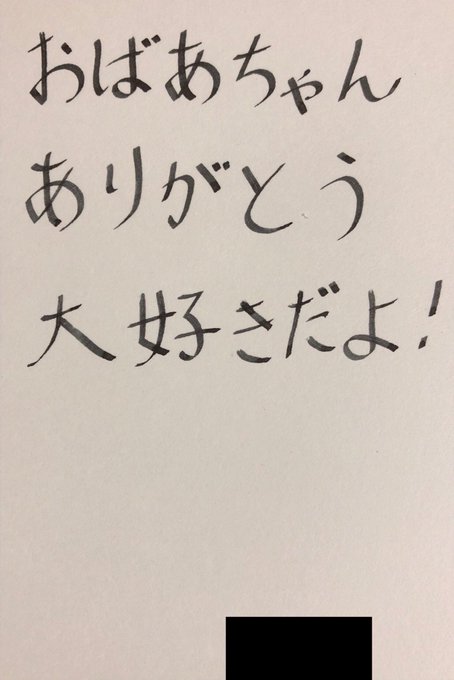 おばあちゃん
ありがとう
大好きだよ!